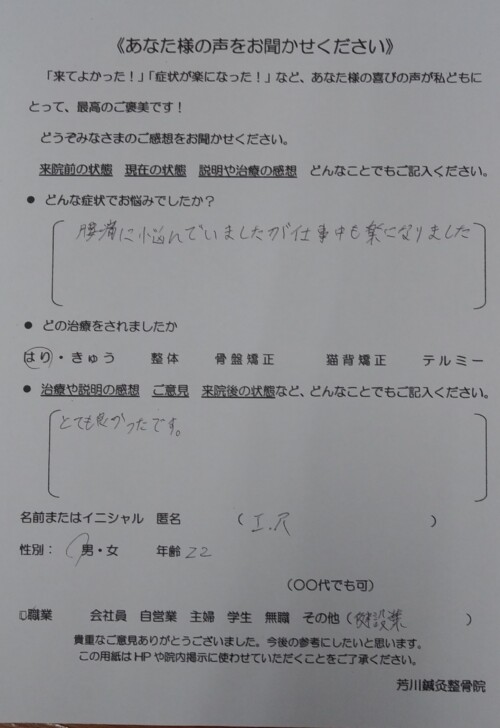 《あなた様の声をお聞かせください》
「来てよかった！」「症状が楽になった！」など、あなた様の喜びの声が私どもに
とって、最高のご褒美です！
どうぞみなさまのご感想をお聞かせください。
来院前の状態　現在の状態　説明や治療の感想　どんなことでもご記入ください。
● どんな症状でお悩みでしたか？
腰痛に悩んでいましたが仕事中も楽になりました
● どの治療をされましたか
はり・きゅう　整体　骨盤矯正　猫背矯正　テルミー
● 治療や説明の感想　ご意見　来院後の状態など、どんなことでもご記入ください。
とても良かったです。
名前またはイニシャル　匿名　（ I.R ）
性別：　男・女　年齢 22
（〇〇代でも可）
職業　会社員　自営業　主婦　学生　無職　その他（ 設業 ）
貴重なご意見ありがとうございました。今後の参考にしたいと思います。
この用紙はHPや院内掲示に使わせていただくことをご了承ください。
芳川鍼灸整骨院